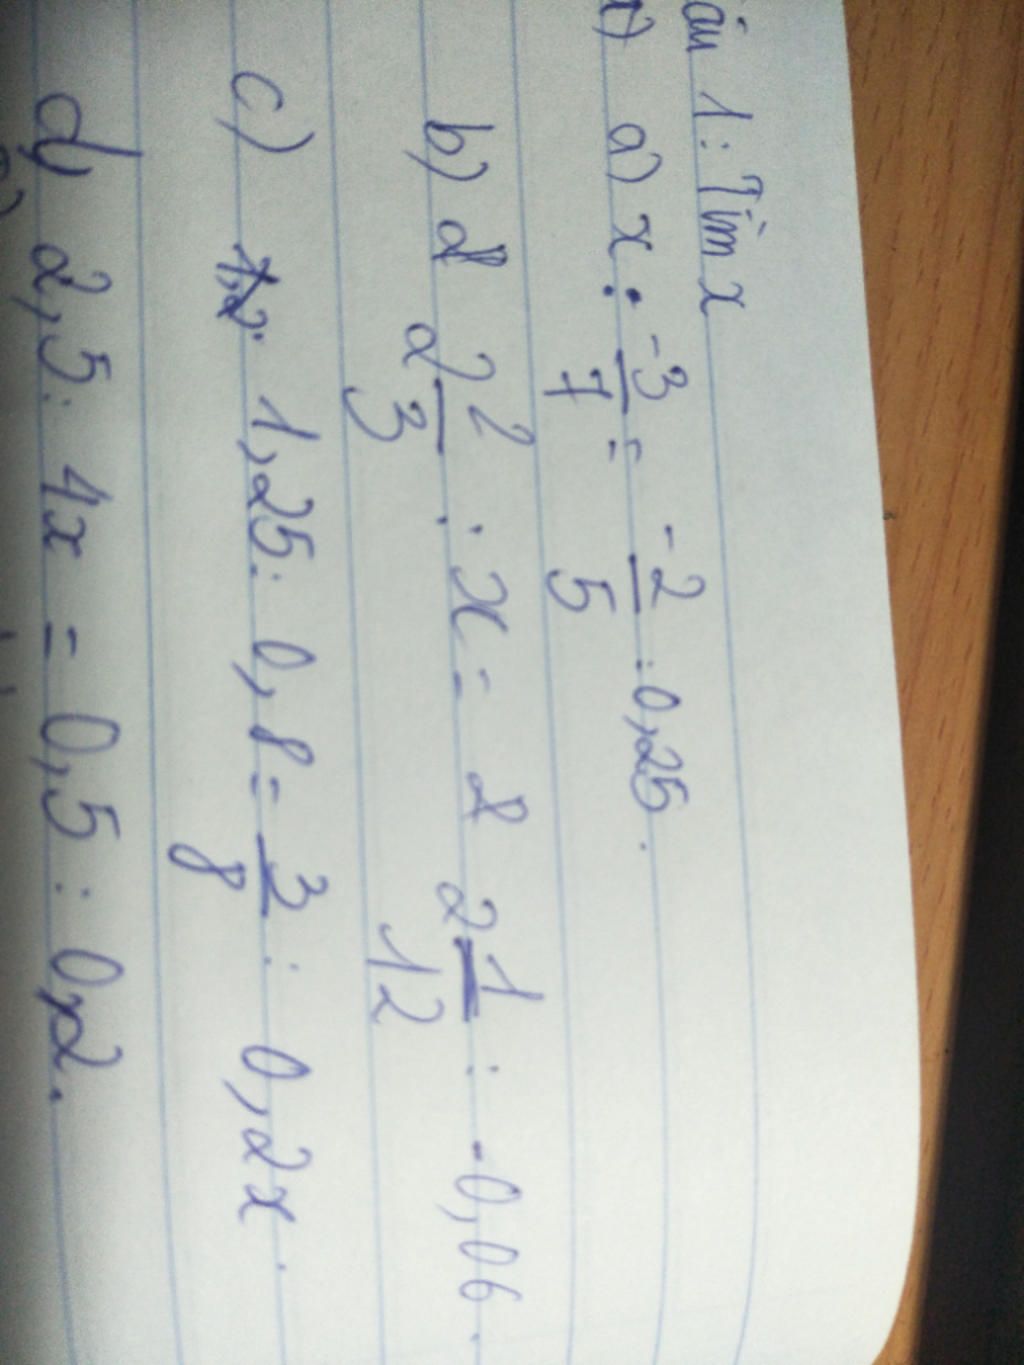 1: Tìm x
a) x : -3/7 = -2/5 : 0,25.
b) 2 2/3 : x = 2 1/12 : -0,06.
c) 1,25 : 0,8 = 3/8 : 0,2x.
d) 2,5 : 4x = 0,5 : 0,2.